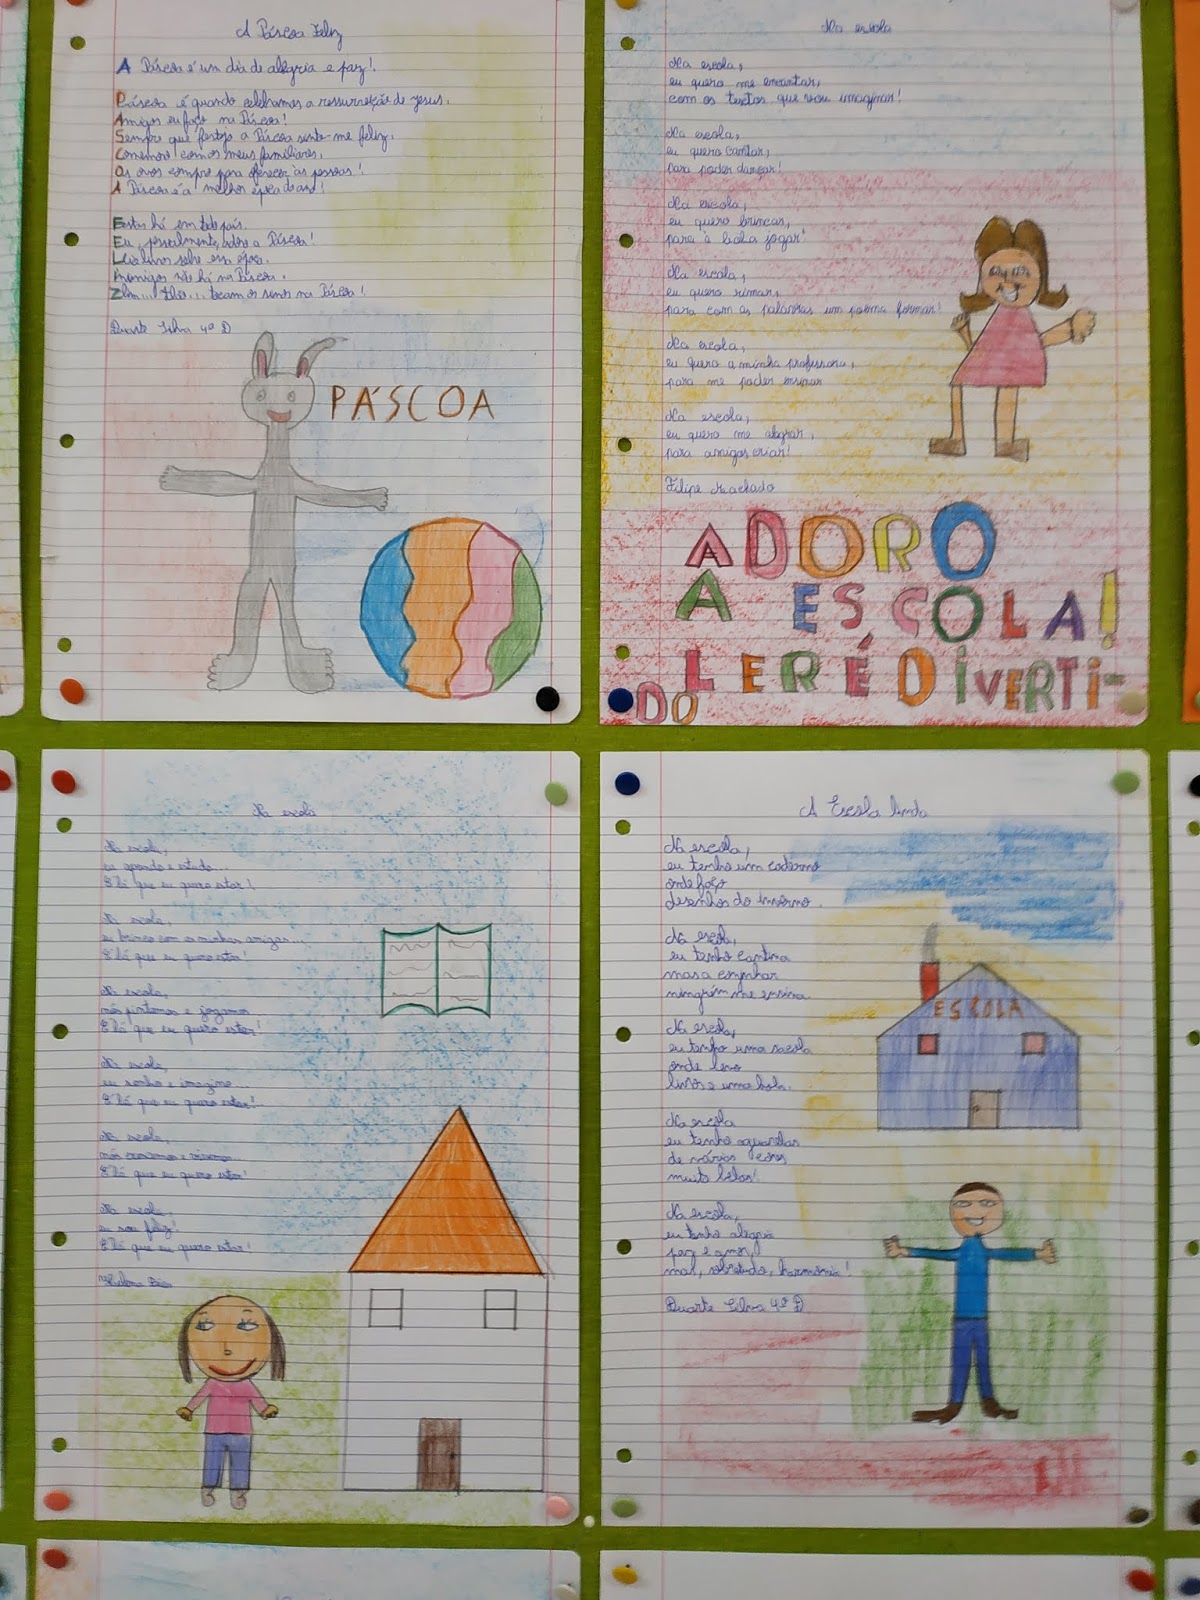 A Páscoa Feliz
A Páscoa é um dia de alegria e paz!
Páscoa é quando celebramos a ressurreição de Jesus.
Amigos eu faço na Páscoa!
Sempre que festejo a Páscoa sinto-me feliz.
Comemoro com os meus familiares.
Os ovos compro para oferecer às pessoas!
A Páscoa é a melhor época do ano!
Festas há em todo país.
Eu, pessoalmente, adoro a Páscoa!
Leio livros sobre essa época.
Inimigos não há na Páscoa.
Zlim... Zlão... tocam os sinos na Páscoa!
Duarte Silva 4º D
PÁSCOA
Na escola
Na escola,
eu quero me encantar,
com os textos que vou imaginar!
Na escola,
eu quero cantar,
para poder dançar!
Na escola,
eu quero brincar,
para à bola jogar!
Na escola,
eu quero rimar,
para com as palavras um poema formar!
Na escola,
eu quero a minha professora,
para me poder ensinar
Na escola,
eu quero me alegrar,
para amigos criar!
Filipe Machado
ADORO
A ESCOLA!
LER É DIVERTI-
DO
Na escola
Na escola,
eu aprendo e estudo...
É lá que eu quero estar!
Na escola,
eu brinco com os minhas amigas...
É lá que eu quero estar!
Na escola,
nós pintamos e jogamos
É lá que eu quero estar!
Na escola,
eu sonho e imagino...
É lá que eu quero estar!
Na escola,
nós
É lá que eu quero estar!
Na escola,
eu sou feliz!
É lá que eu quero estar!
A Escola linda
Na escola,
eu tenho um caderno
onde faço
desenhos do inverno.
Na escola,
eu tenho cantina
mas a cozinhar
ninguém me ensina.
Na escola,
eu tenho uma sacola
onde levo
livros e uma bola.
Na escola
eu tenho aguarelas
de várias cores
muito belas!
Na escola,
eu tenho alegria
paz e amor,
mas, sobretudo, harmonia!
Duarte Silva 4º D
ESCOLA